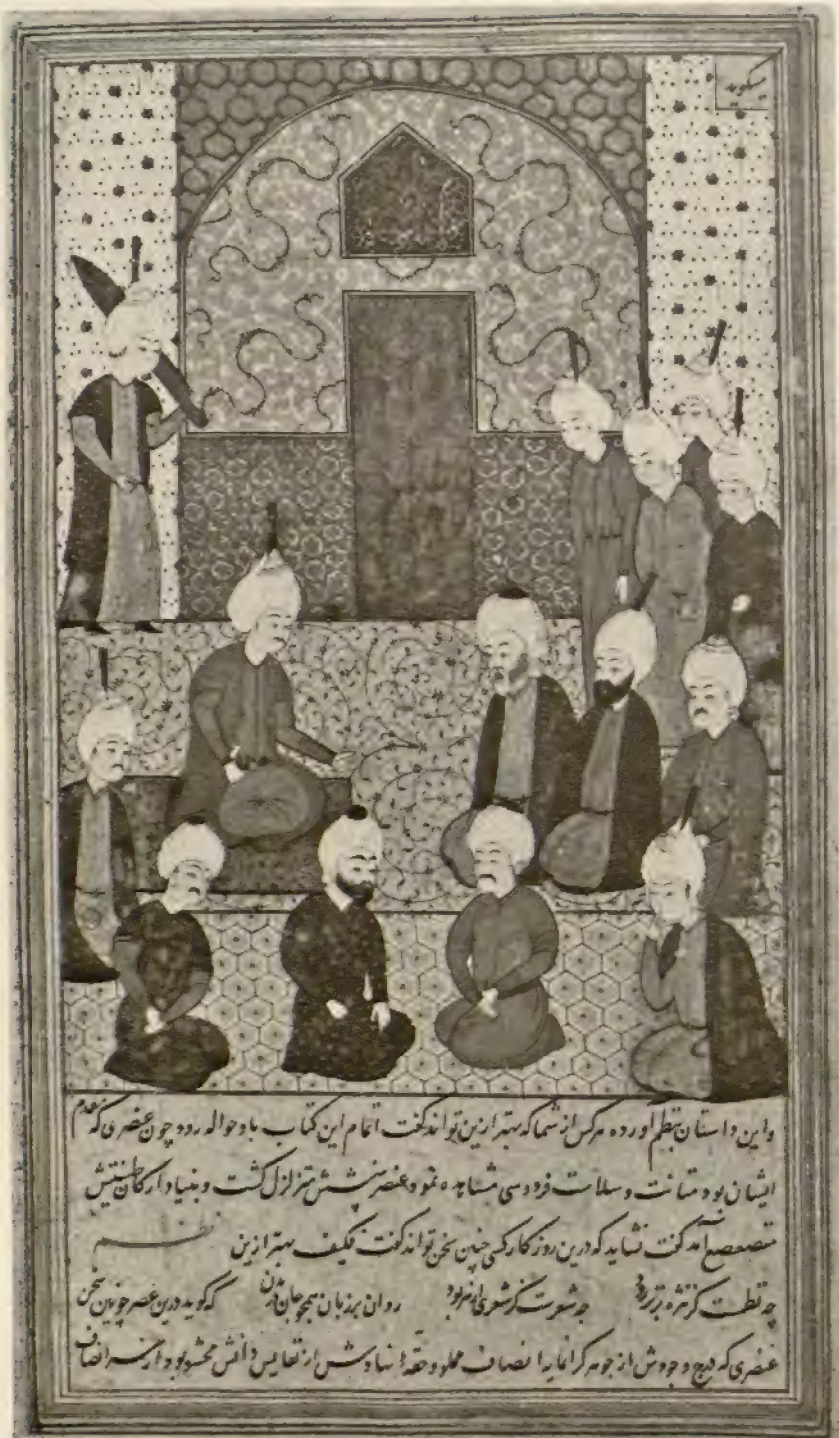 میگوید
واین داستان بنظم آورده هرکس از شما که بهتر ازین تواند گفت اتمام این کتاب باو حواله رود چون عنصری که مقدم
ایشان بود متانت و سلاست فردوسی مشاهده نمود عنصر متزلزل گشت و بنیاد ارکان طینتش
متضعضع آمد گفت نشاید که درین روزگار کسی چنین سخن تواند گفت فکیف بهتر ازین نظم
چه نظمست کز نثره برتر بود چه شعرست کز شعری روان بر زبان همچو جان در بدن که گوید درین عصر چونین سخن
عنصری که درج وجودش از جوهر گرانمایه انصاف مملو و حقه نهادش از نفایس دانش محشو بود از سر انصاف